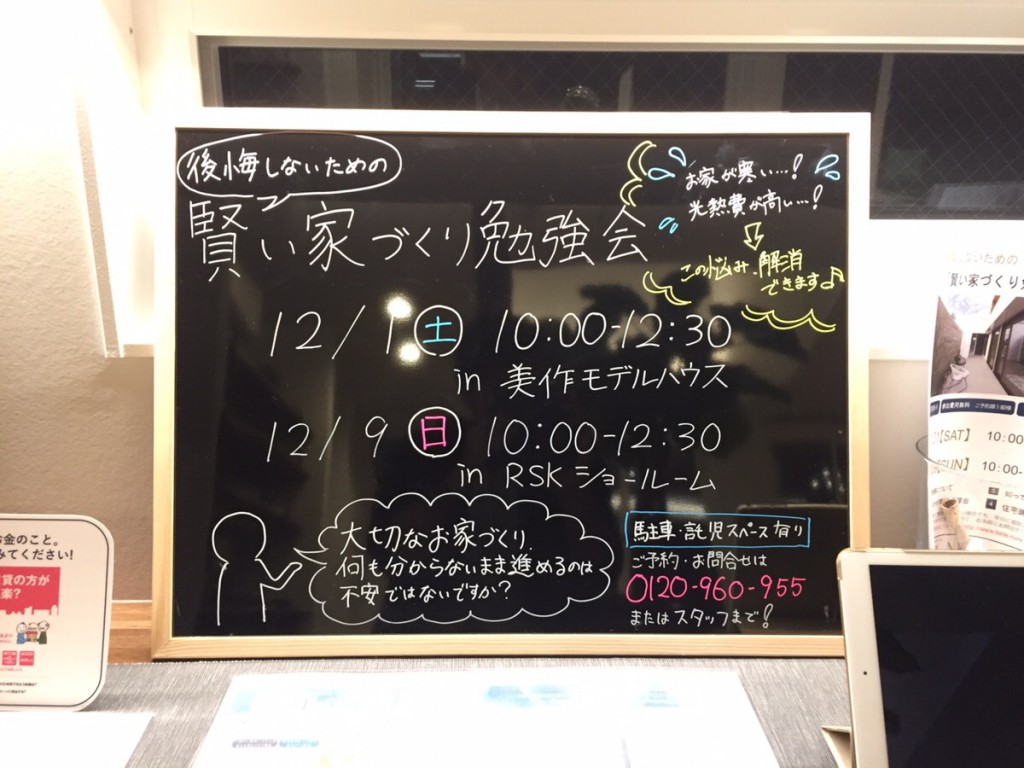 後悔しないための
賢い家づくり勉強会
お家が寒い…!
光熱費が高い…!
この悩み、解消
できます♪
12/1 土 10:00-12:30
in 美作モデルハウス
12/9 日 10:00-12:30
in RSK ショールーム
大切なお家づくり
何も分からないまま進めるのは
不安ではないですか?
駐車・託児スペース有り
ご予約・お問合せは
0120-960-955
またはスタッフまで!
金のこと。
みてください!
賃の方が
楽?
しないための
「賢い家づくり
【SAT】 10:00
SUN】 10:00-